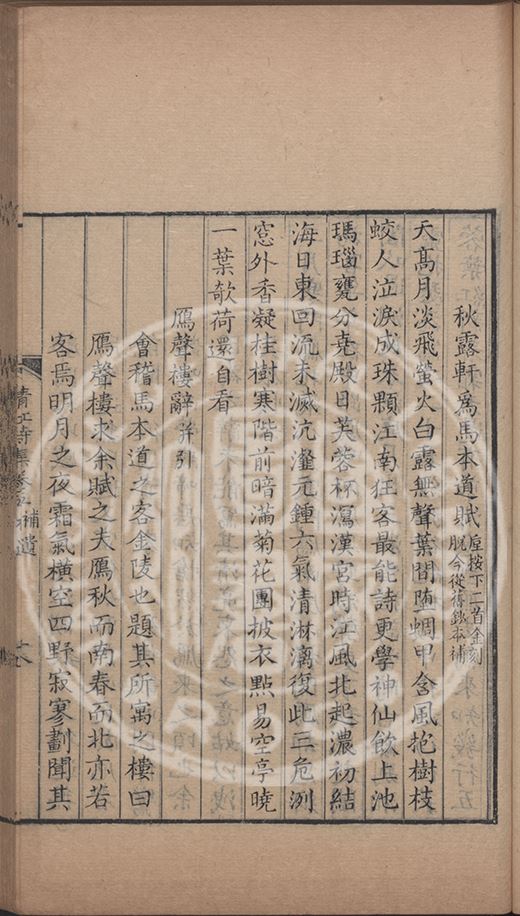 秋露軒爲馬本道賦
垕按下二首金刻
脫今從舊鈔本補
天髙月淡飛螢火白露無聲葉間墮蜩甲含風抱樹枝
蛟人泣淚成珠顆江南狂客最能詩更學神仙飲上池
瑪瑙甕分堯殿日芙蓉杯瀉漢宮時江風北起濃初結
海日東回流未滅沆瀣元鍾六氣清淋漓復此三危冽
窓外香疑桂樹寒階前暗滿菊花團披衣點易空亭曉
一葉欹荷還自看
鴈聲樓辭并引
會稽馬本道之客金陵也題其所寓之樓曰
鴈聲樓求余賦之夫鴈秋而南春而北亦若
客焉明月之夜霜氣橫空四野寂寥劃聞其
補遺